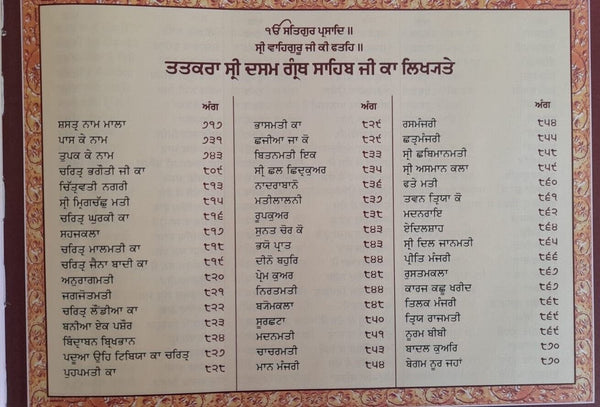 ੴ ਸਤਿਗੁਰ ਪ੍ਰਸਾਦਿ ॥
ਸ੍ਰੀ ਵਾਹਿਗੁਰੂ ਜੀ ਕੀ ਫਤਹਿ ॥
ਤਤਕਰਾ ਸ੍ਰੀ ਦਸਮ ਗ੍ਰੰਥ ਸਾਹਿਬ ਜੀ ਕਾ ਲਿਖ੍ਯਤੇ
ਅੰਗ
ਸ਼ਸਤ੍ਰ ਨਾਮ ਮਾਲਾ ੭੧੭
ਪਾਸ ਕੇ ਨਾਮ ੭੩੧
ਤੁਪਕ ਕੇ ਨਾਮ ੭੪੩
ਚਰਿਤ੍ਰ ਭਗੌਤੀ ਜੀ ਕਾ ੮੦੯
ਚਿੱਤ੍ਰਵਤੀ ਨਗਰੀ ੮੧੩
ਸ੍ਰੀ ਮ੍ਰਿਗਚੱਛੁ ਮਤੀ ੮੧੫
ਚਰਿਤ੍ਰ ਘੁਰਕੀ ਕਾ ੮੧੬
ਸਹਜਕਲਾ ੮੧੭
ਚਰਿਤ੍ਰ ਮਾਲਮਤੀ ਕਾ ੮੧੮
ਚਰਿਤ੍ਰ ਜੈਨਾ ਬਾਦੀ ਕਾ ੮੧੯
ਅਨੁਰਾਗਮਤੀ ੮੨੦
ਜਗਜੋਤਮਤੀ ੮੨੧
ਚਰਿਤ੍ਰ ਲੌਡੀਆ ਕਾ ੮੨੨
ਬਨੀਆ ਏਕ ਪਸ਼ੌਰ ੮੨੩
ਬਿੰਦ੍ਰਾਬਨ ਬ੍ਰਿਖਭਾਨ ੮੨੪
ਪਦੂਆ ਉਹਿ ਟਿਬਿਯਾ ਕਾ ਚਰਿਤ੍ਰ ੮੨੭
ਪੁਹਪਮਤੀ ਕਾ ੮੨੮
ਅੰਗ
ਭਾਸਮਤੀ ਕਾ ੮੨੯
ਛਜੀਆ ਜਾ ਕੋ ੮੨੯
ਬਿਤਨਮਤੀ ਇਕ ੮੩੩
ਸ੍ਰੀ ਛਲ ਛਿਦ੍ਰਕੁਅਰ ੮੩੫
ਨਾਦਰਾਬਾਨੋ ੮੩੬
ਮਤੀਲਾਲਨੀ ੮੩੭
ਰੂਪਕੁਅਰ ੮੩੮
ਸੁਨਤ ਚੋਰ ਕੋ ੮੪੩
ਭਯੋ ਪ੍ਰਾਤ ੮੪੩
ਦੀਨੋ ਬਹੁਰਿ ੮੪੪
ਪ੍ਰੇਮ ਕੁਅਰ ੮੪੮
ਨਿਰਤਮਤੀ ੮੪੪
ਬ੍ਯੋਮਕਲਾ ੮੪੮
ਸੂਰਛਟਾ ੮੫੦
ਮਦਨਮਤੀ ੮੫੧
ਚਾਚਰਮਤੀ ੮੫੩
ਮਾਨ ਮੰਜਰੀ ੮੫੪
ਅੰਗ
ਰਸਮੰਜਰੀ ੮੫੪
ਛਤ੍ਰਮੰਜਰੀ ੮੫੫
ਸ੍ਰੀ ਛਬਿਮਾਨਮਤੀ ੮੫੮
ਸ੍ਰੀ ਅਸਮਾਨ ਕਲਾ ੮੫੯
ਫਤੇ ਮਤੀ ੮੬੦
ਤਵਨ ਤ੍ਰਿਯਾ ਕੋ ੮੬੧
ਮਦਨਰਾਇ ੮੬੨
ਏਦਿਲਸ਼ਾਹ ੮੬੪
ਸ੍ਰੀ ਦਿਲ ਜਾਨਮਤੀ ੮੬੫
ਪ੍ਰੀਤਿ ਮੰਜਰੀ ੮੬੬
ਰੁਸਤਮਕਲਾ ੮੬੭
ਕਾਰਜ ਕਛੂ ਖਰੀਦ ੮੬੭
ਤਿਲਕ ਮੰਜਰੀ ੮੬੮
ਤ੍ਰਿਯ ਰਾਜਮਤੀ ੮੬੯
ਨੂਰਮ ਬੀਬੀ ੮੬੯
ਬਾਦਲ ਕੁਅਰਿ ੮੭੦
ਬੇਗਮ ਨੂਰ ਜਹਾਂ ੮੭੦